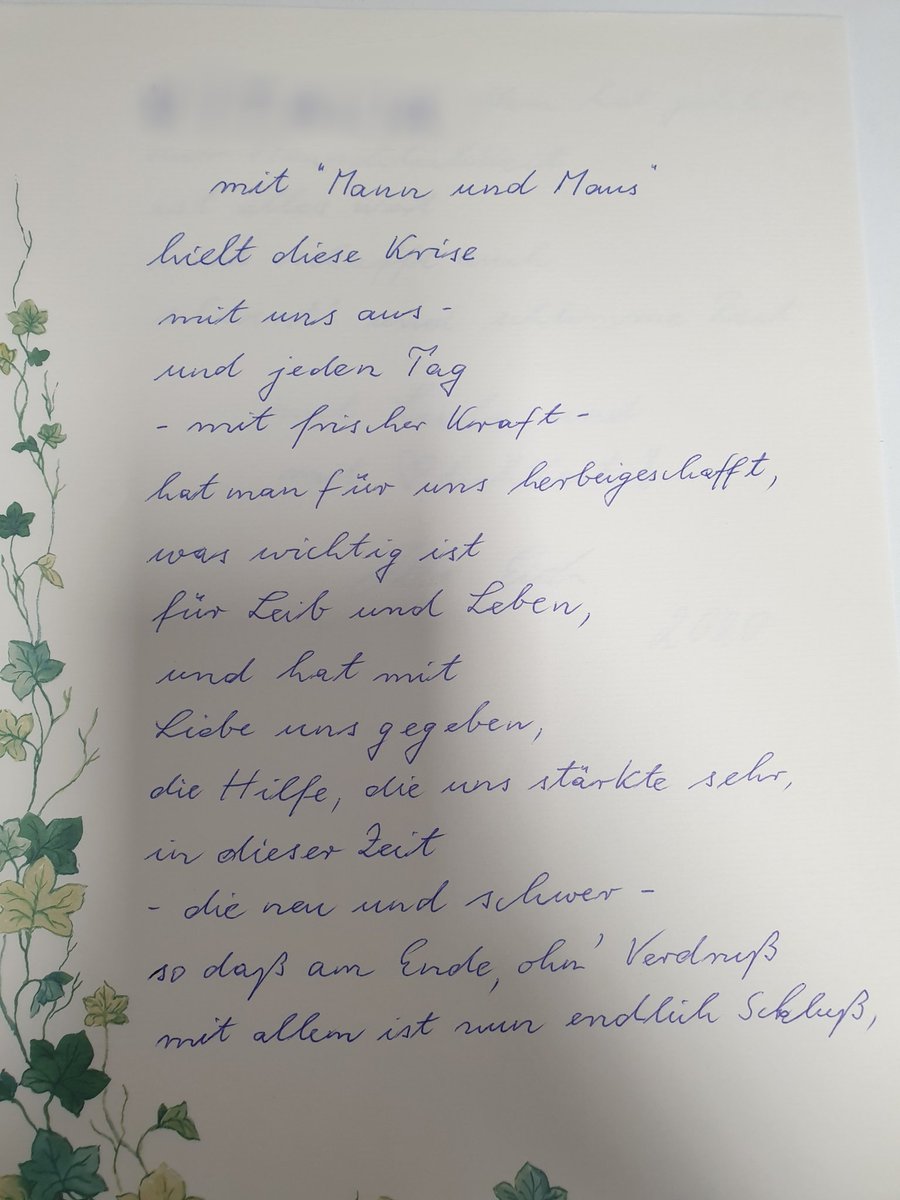 mit "Mann und Maus"
hielt diese Krise
mit uns aus -
und jeden Tag
- mit frischer Kraft -
hat man für uns herbeigeschafft,
was wichtig ist
für Leib und Leben,
und hat mit
Liebe uns gegeben,
die Hilfe, die uns stärkte sehr,
in dieser Zeit
- die neu und schwer -
so daß am Ende, ohn' Verdruß
mit allem ist nun endlich Schluß,